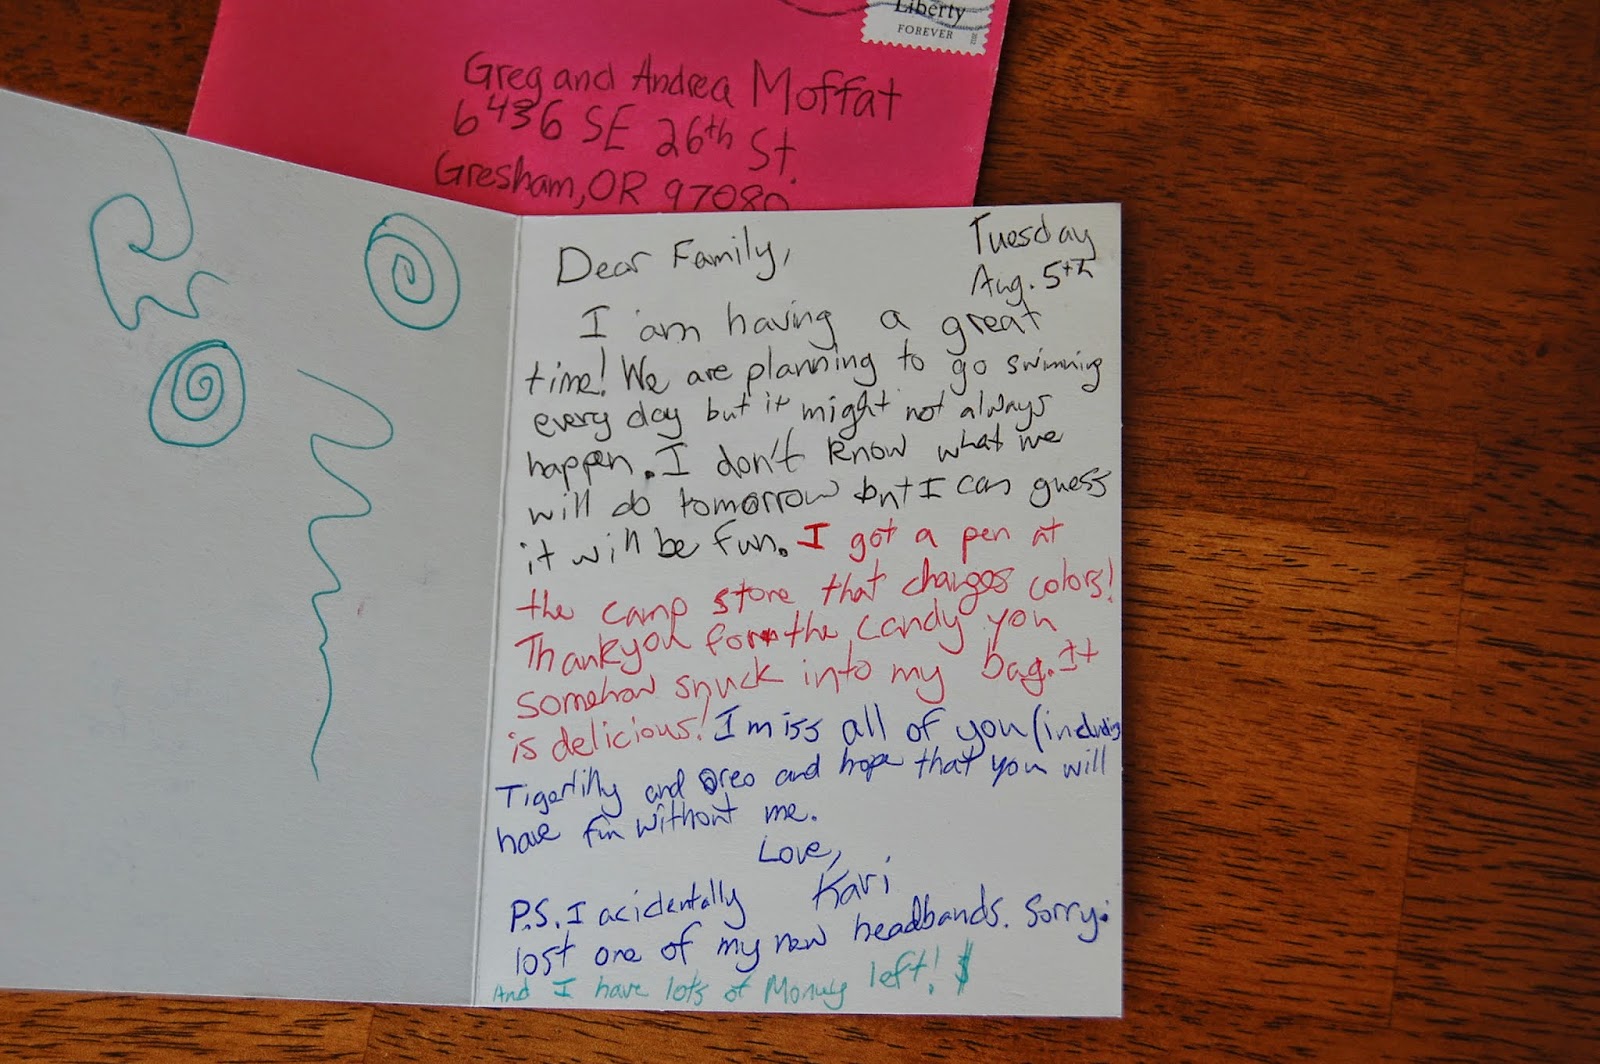 Liberty
FOREVER
Greg and Andrea Moffat
6436 SE 26th St.
Gresham, OR 97080
Tuesday
Aug. 5th
Dear Family,
I am having a great
time! We are planning to go swimming
every day but it might not always
happen. I don't know what we
will do tomorrow but I can guess
it will be fun. I got a pen at
the camp store that changes colors!
Thankyou for the candy you
somehow snuck into my bag. It
is delicious! I miss all of you (including
Tigerlilly and Oreo and hope that you will
have fun without me.
Love,
Kari
P.S. I acidentally
lost one of my new headbands. Sorry.
And I have lots of Monuy left! $